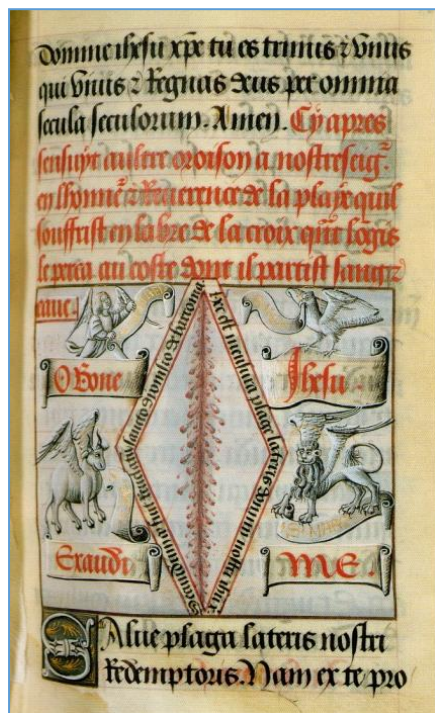 domine ihesu xp̄e tu es trinus ⁊ vnus
qui viuis ⁊ Regnas deus per omnia
secula seculorum. Amen. Cy apres
sensuyt aultre oroison a nostreseigr̄
en lhonner̄ ⁊ Reuerence de la playe quil
souffrist en labre de la croix qn̄t logis
le perca au coste dont il partist sang ⁊
eaue.
O Bone
Ihesu.
Exaudi
ME.
Hec est mensura plage lateris domini nostri ihu x
Salue plaga lateris nostri
Redemptoris. Nam ex te pro